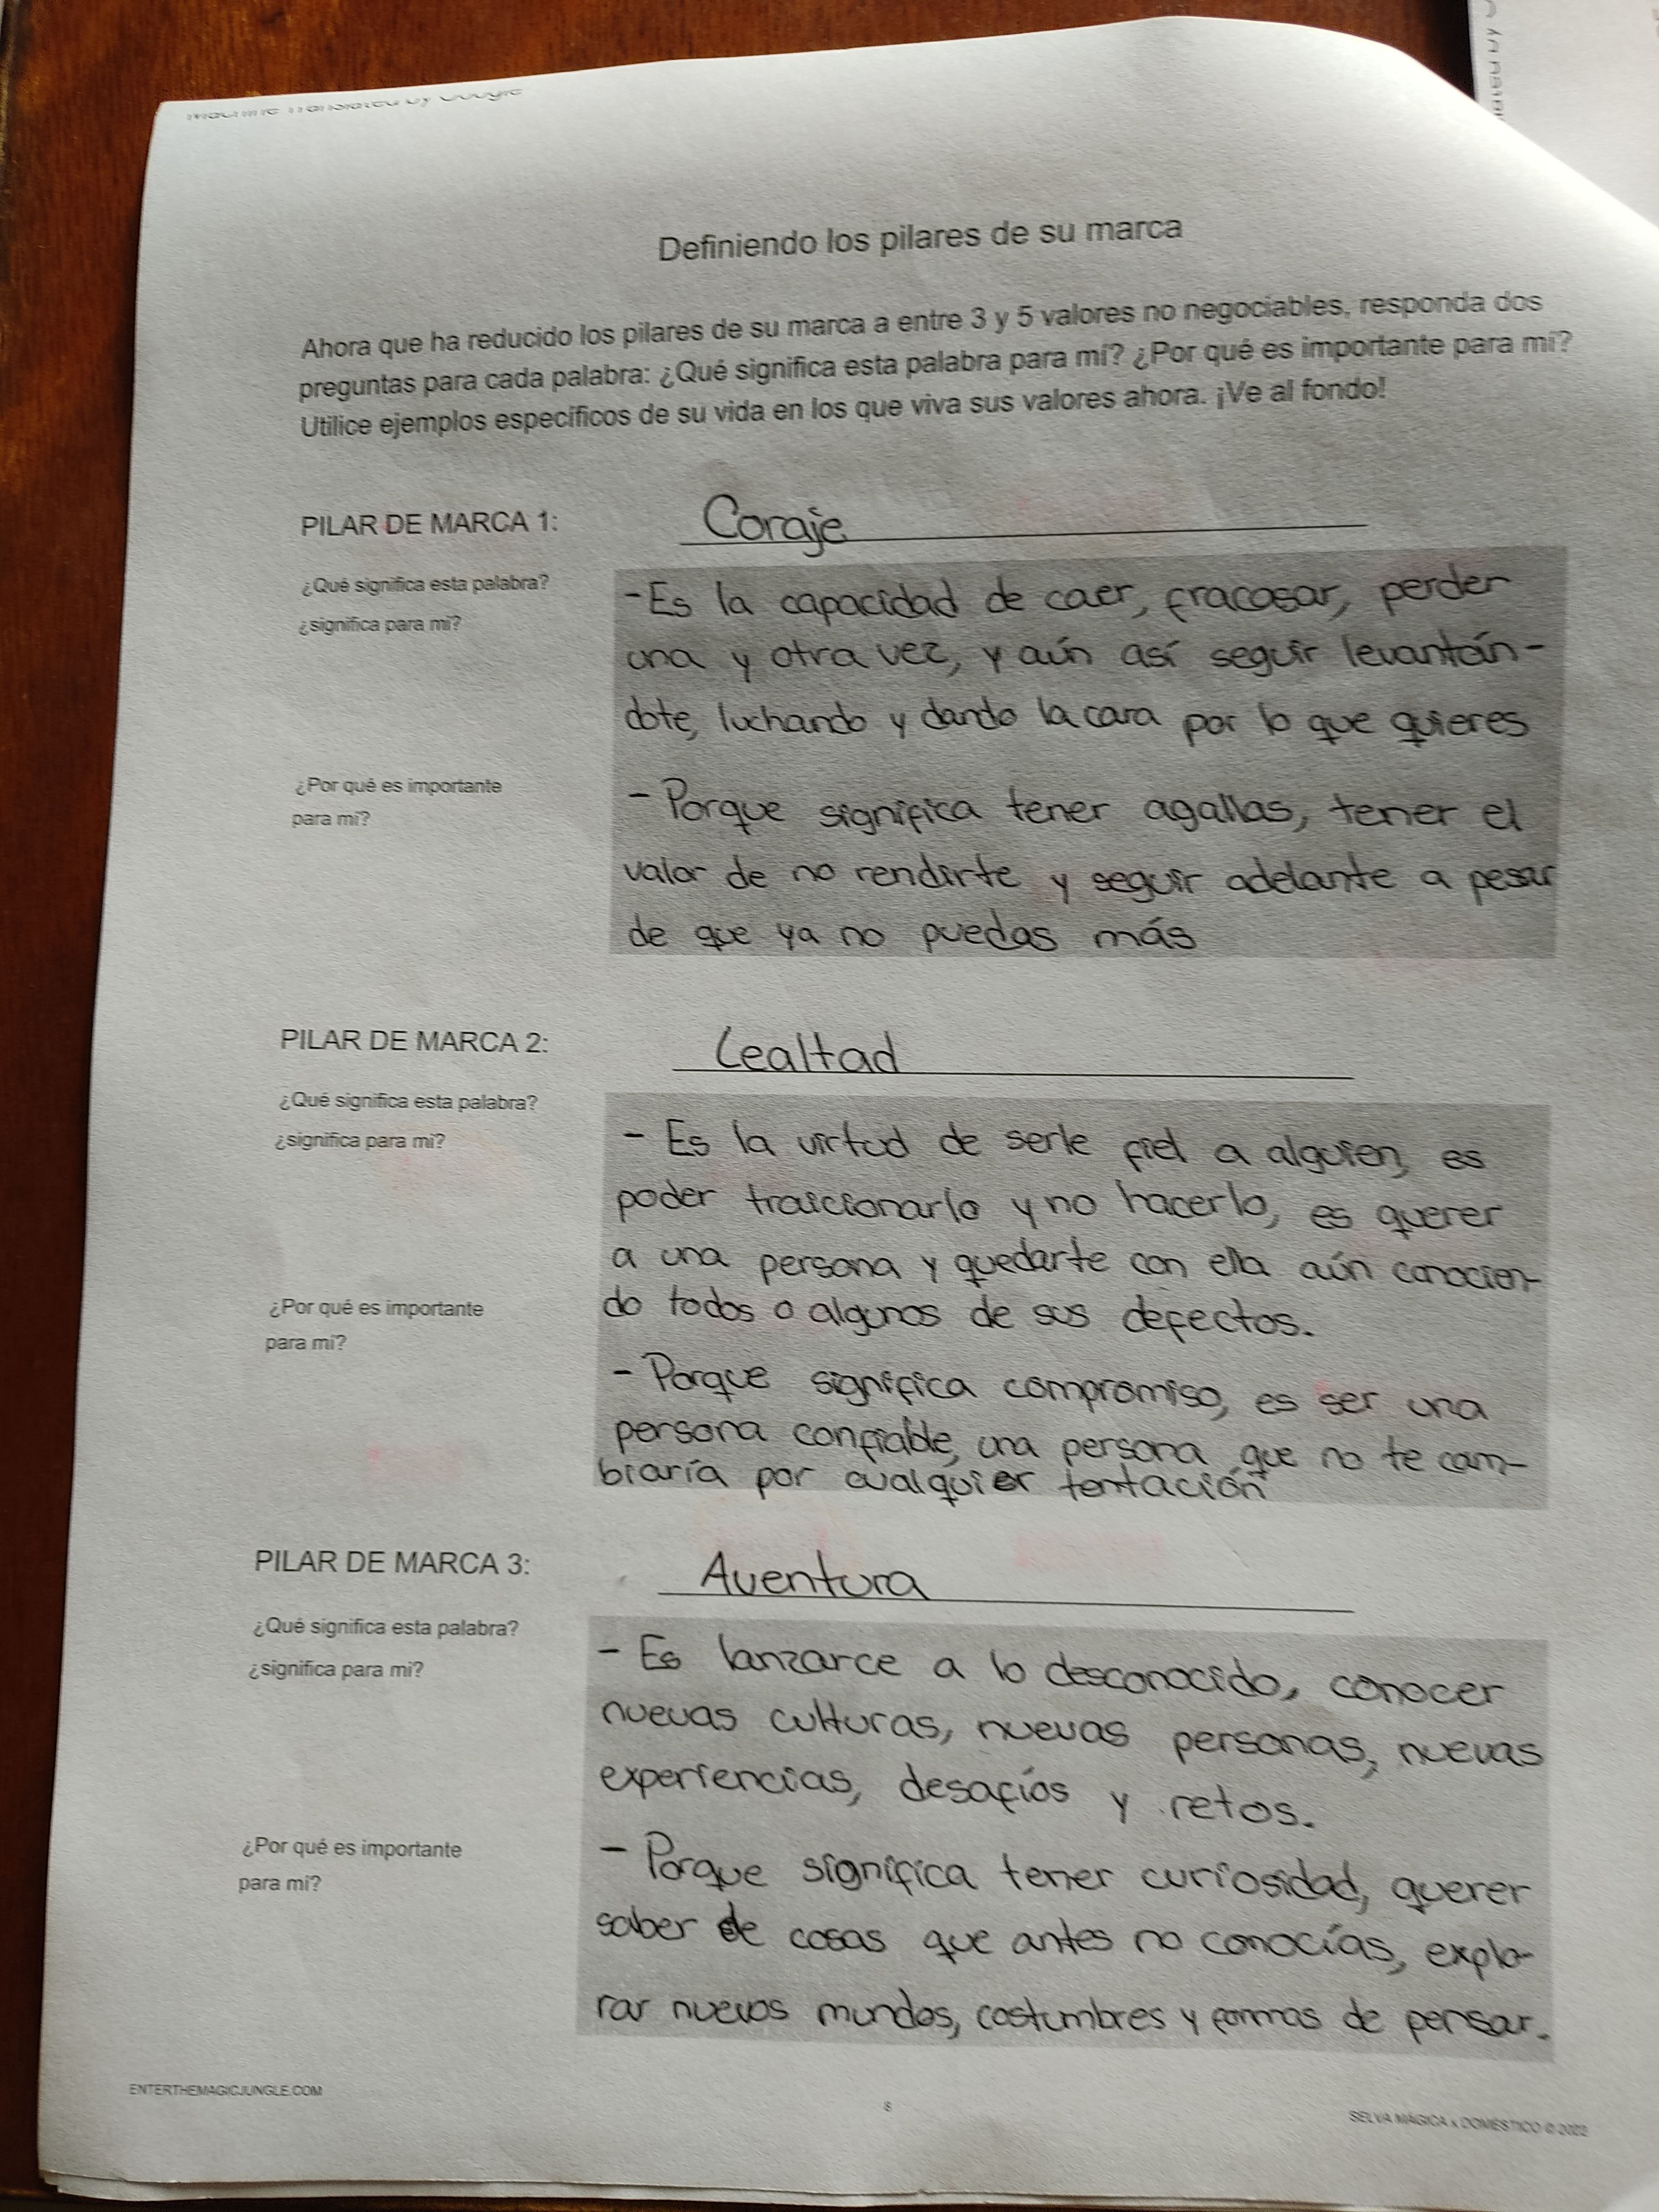 Machine Translated by Google
Definiendo los pilares de su marca
Ahora que ha reducido los pilares de su marca a entre 3 y 5 valores no negociables, responda dos
preguntas para cada palabra: ¿Qué significa esta palabra para mí? ¿Por qué es importante para mí?
Utilice ejemplos específicos de su vida en los que viva sus valores ahora. ¡Ve al fondo!
PILAR DE MARCA 1: Coraje
¿Qué significa esta palabra?
¿significa para mi?
-Es la capacidad de caer, fracasar, perder
una y otra vez, y aún así seguir levantán-
dote, luchando y dando la cara por lo que quieres
¿Por qué es importante
para mi?
- Porque significa tener agallas, tener el
valor de no rendirte y seguir adelante a pesar
de que ya no puedas más
PILAR DE MARCA 2: Lealtad
¿Qué significa esta palabra?
¿significa para mi?
- Es la virtud de serle fiel a alguien, es
poder traicionarlo y no hacerlo, es querer
a una persona y quedarte con ella aún conocien-
do todos o algunos de sus defectos.
¿Por qué es importante
para mi?
- Porque significa compromiso, es ser una
persona confiable, una persona que no te cam-
biaría por cualquier tentación
PILAR DE MARCA 3: Aventura
¿Qué significa esta palabra?
¿significa para mi?
- Es lanzarce a lo desconocido, conocer
nuevas culturas, nuevas personas, nuevas
experiencias, desafíos y retos.
¿Por qué es importante
para mi?
- Porque significa tener curiosidad, querer
saber de cosas que antes no conocías, explo-
rar nuevos mundos, costumbres y formas de pensar.
ENTERTHEMAGICJUNGLE.COM
8
SELVA MÁGICA x DOMÉSTICO © 2022